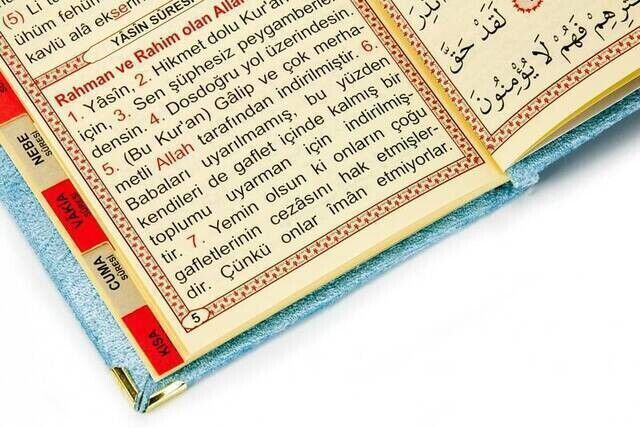 (5) Li
ühüm fehüm
kavlü alâ ekserih
YÂSÎN SÛRESİ
Rahman ve Rahim olan Allah
1. Yâsîn, 2. Hikmet dolu Kur'an
için, 3. Sen şüphesiz peygamberler
densin. 4. Dosdoğru yol üzerindesin.
5. (Bu Kur'an) Gâlip ve çok merha-
metli Allah tarafından indirilmiştir. 6.
Babaları uyarılmamış, bu yüzden
kendileri de gaflet içinde kalmış bir
toplumu uyarman için indirilmiş-
tir. 7. Yemin olsun ki onların çoğu
gafletlerinin cezâsını hak etmişler-
dir. Çünkü onlar imân etmiyorlar.
5
NEBE SÛRESİ
VÂKIA SÛRESİ
CUMA SÛRESİ
KISA
لَقَدْ حَقَّ
فَهُمْ لَا يُؤْمِنُونَ